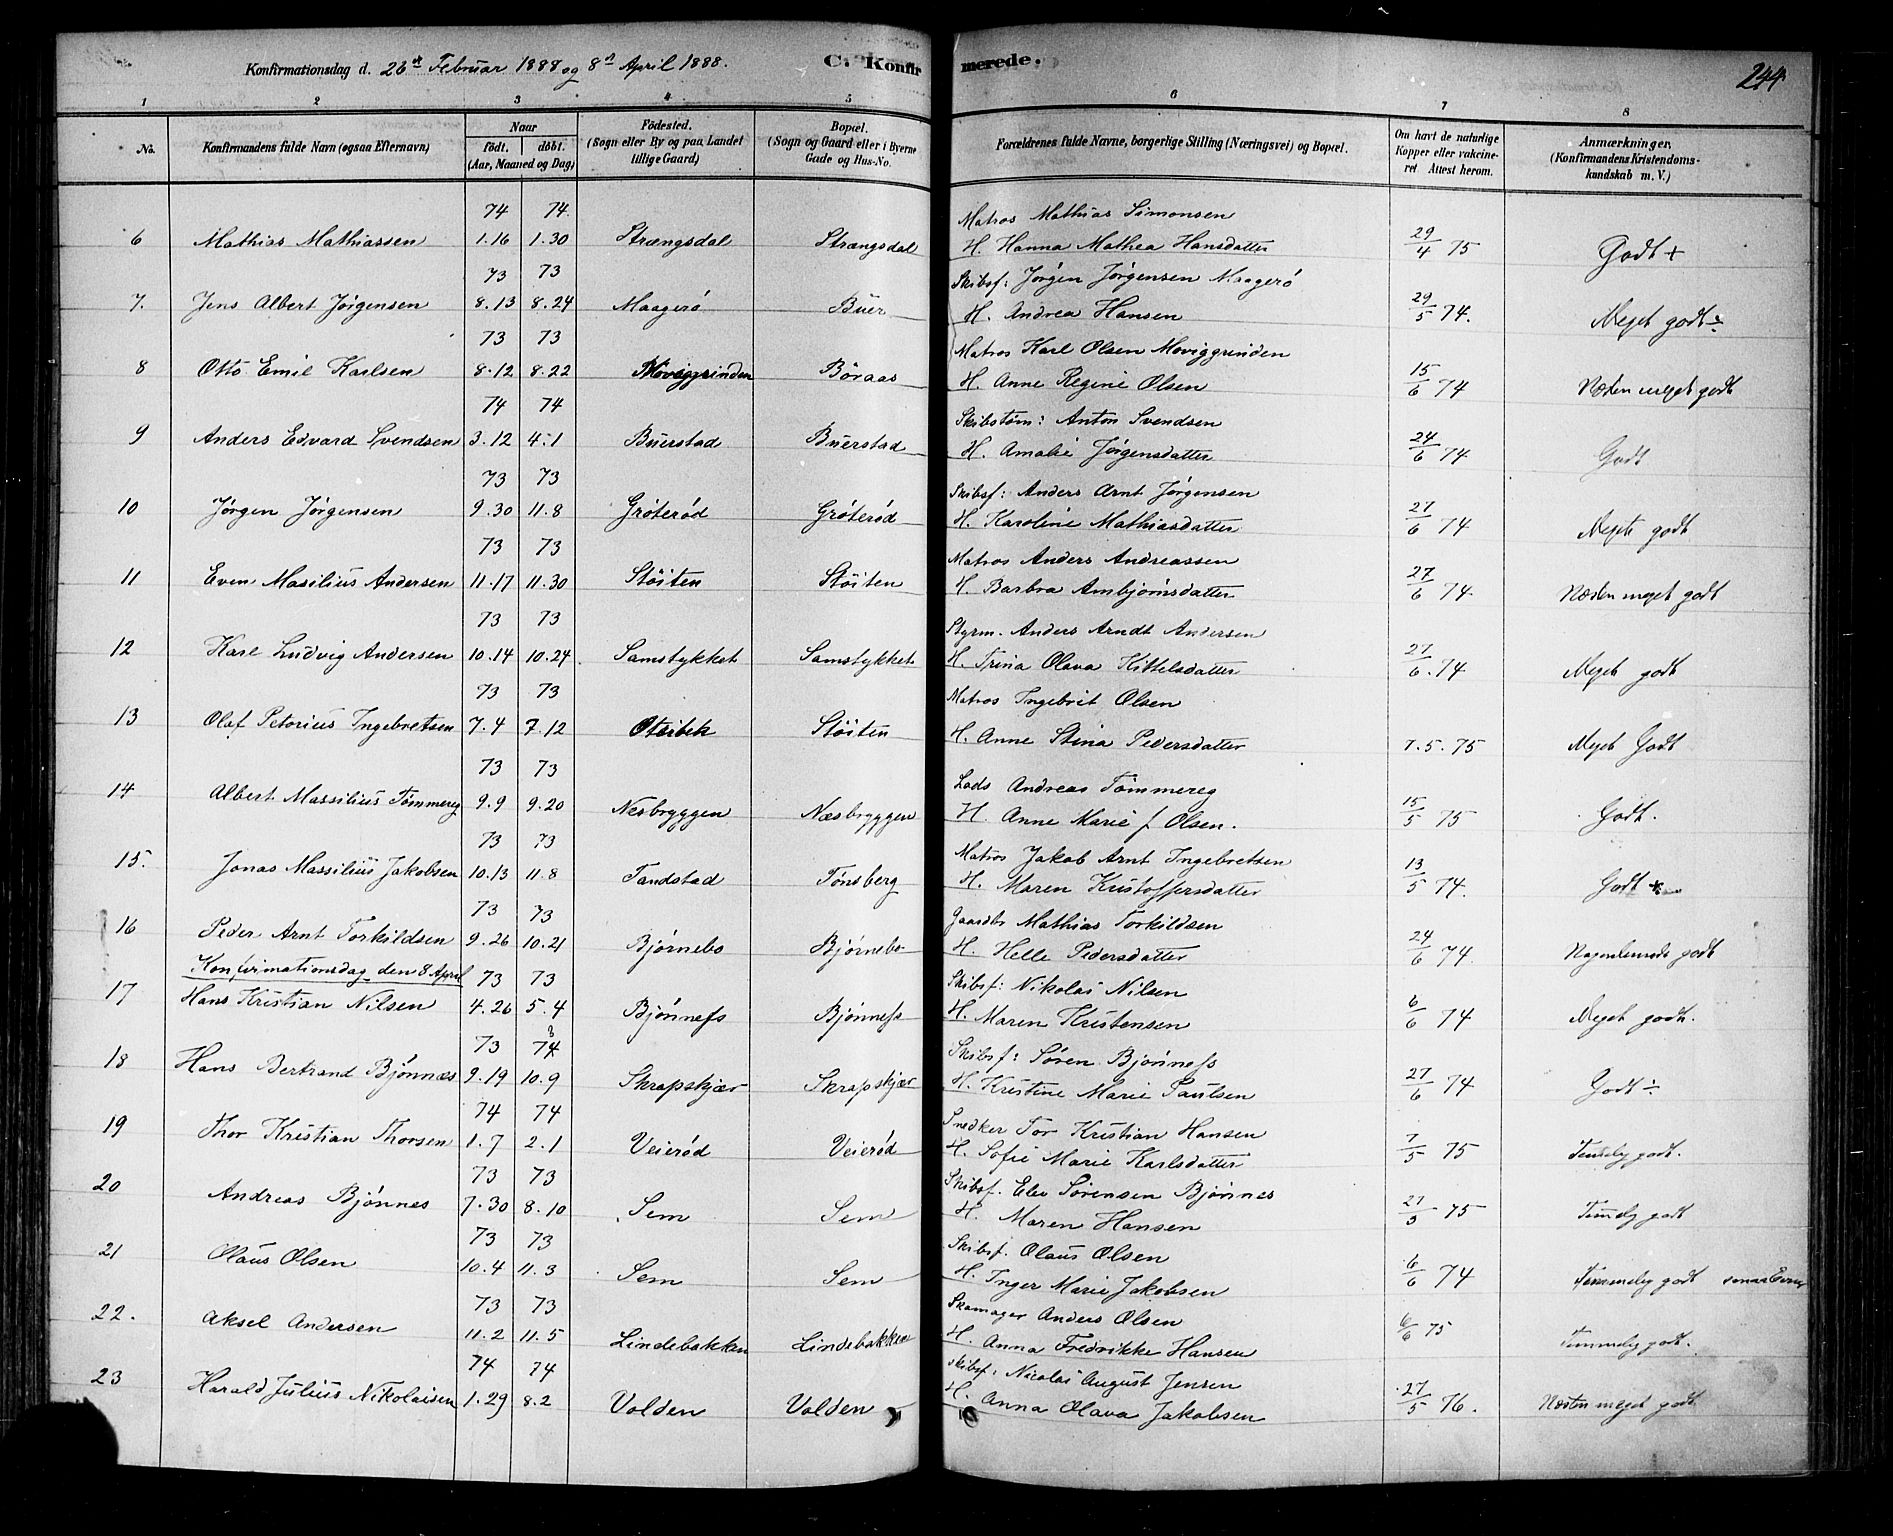 Konfirmationsdag d. 26de Februar 1888 og 8de April 1888. C. Konfirmerede. 244
1 2 3 4 5 6 7 8
No. Konfirmandens fulde Navn (ogsaa Efternavn) Naar födt. döbt. (Aar, Maaned og Dag) Födested. (Sogn eller By og paa Landet tillige Gaard) Bopæl. (Sogn og Gaard eller i Byerne Gade og Hus-No. Forældrenes fulde Navne, borgerlige Stilling (Næringsvei) og Bopæl. Om havt de naturlige Kopper eller vakcineret Attest herom. Anmærkninger, (Konfirmandens Kristendomskundskab m. V.)
74 74. Matros Mathias Simonsen
6 Mathias Mathiassen 1.16 1.30 Strængsdal Strængsdal H. Hanna Mathea Hansdatter 29/4 75 Godt +
73 73 Skibsf: Jørgen Jørgensen Maagerö
7. Jens Albert Jørgensen 8.13 8.24 Maagerö Buer H. Andrea Hansen 29/5 74. Meget godt ÷
73 73 Matros Karl Olsen Moviggrinden
8 Otto Emil Karlsen 8.12 8.22 Moviggrinden Böraas H. Anne Regine Olsen 15/6 74 Næsten meget godt
74 74 Skibstøm: Anton Svendsen
9 Anders Edvard Svendsen 3.12 4.1 Buerstad Buerstad H. Amalie Jørgensdatter 24/6 74 Godt
73 73 Skibsf: Anders Arnt Jørgensen
10 Jørgen Jørgensen 9.30 11.8 Gröteröd Gröteröd H. Karoline Mathiasdatter 27/6 74 Meget godt
73 73 Matros Anders Andreassen
11 Even Masilius Andersen 11.17 11.30 Stöiten Stöiten H. Barbra Arnbjørnsdatter 27/6 74 Næsten meget godt
73 73 Styrm. Anders Arndt Andersen
12 Karl Ludvig Andersen 10.14 10.24. Samstykket Samstykket H. Trina Olava Kittelsdatter 27/6.74 Meget godt
73 73 Matros Ingebrit Olsen
13 Olaf Petorius Ingebretsen 7.4 7.12 Oterbek Stöiten H. Anne Stina Pedersdatter 7.5.75 Meget Godt
73 73 Lods Andreas Tömmereg
14 Albert Massilius Tömmereg 9.9 9.20 Nesbryggen Næsbryggen H. Anne Marie f Olsen. 15/5 75 Godt.
73 73 Matros Jakob Arnt Ingebretsen
15. Jonas Massilius Jakobsen 10.13 11.8 Tandstad Tönsberg H. Maren Kristoffersdatter 13/5 74. Godt +
73 73 Gaardbr Mathias Torkildsen
16 Peder Arnt Torkildsen 9.26 10.21 Bjørnebo Bjørnebo H. Helle Pedersdatter 24/6 74. godt
Konfirmationsdag den 8 April 73 73 Skibsf: Nikolai Nilsen
17 Hans Kristian Nilsen 4.26 5.4 Bjønness Bjønness H. Maren Kristensen 6/6 74 Meget godt.
73 74 3 Skibsf: Søren Bjønness
18 Hans Bertrand Bjønnæs 9.19 10.9 Skrapskjær Skrapskjær H. Kristine Marie Paulsen 27/6 74 Godt ÷
74 74 Snedker Tor Kristian Hansen
19 Thor Kristian Thorsen 1.7 2.1 Veieröd Veieröd H. Sofie Marie Karlsdatter 7/5 75 Temmelig godt.
73 73 Skibsf. Elev Sørensen Bjönnes
20 Andreas Bjønnes 7.30 8.10 Sem Sem H. Maren Hansen 27/5 75 Temmelig godt
73 73 Skibsf. Olaus Olsen
21 Olaus Olsen 10.4 11.3 Sem Sem H. Inger Marie Jakobsen 6/6 74 Temmelig godt
73 73 Skomager Anders Olsen
22. Aksel Andersen 11.2 11.5 Lindebakken Lindebakken H. Anna Fredrikke Hansen 6/6 75 Temmelig godt.
74 74 Skibsf: Nicolai August Jensen
23 Harald Julius Nikolaisen 1.29 8.2 Volden Volden H. Anna Olava Jakobsen 27/5 76. Næsten meget godt